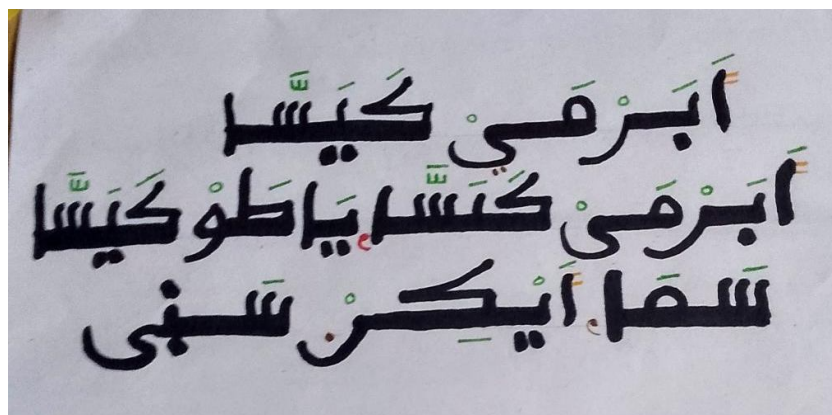 اَبَرْمَيْ كَيَسَّا
اَبَرْمَيْ كَىَسَّا يَاطَوْ كَيَسَّا
سَمَا اَيْكِنْ سَنى